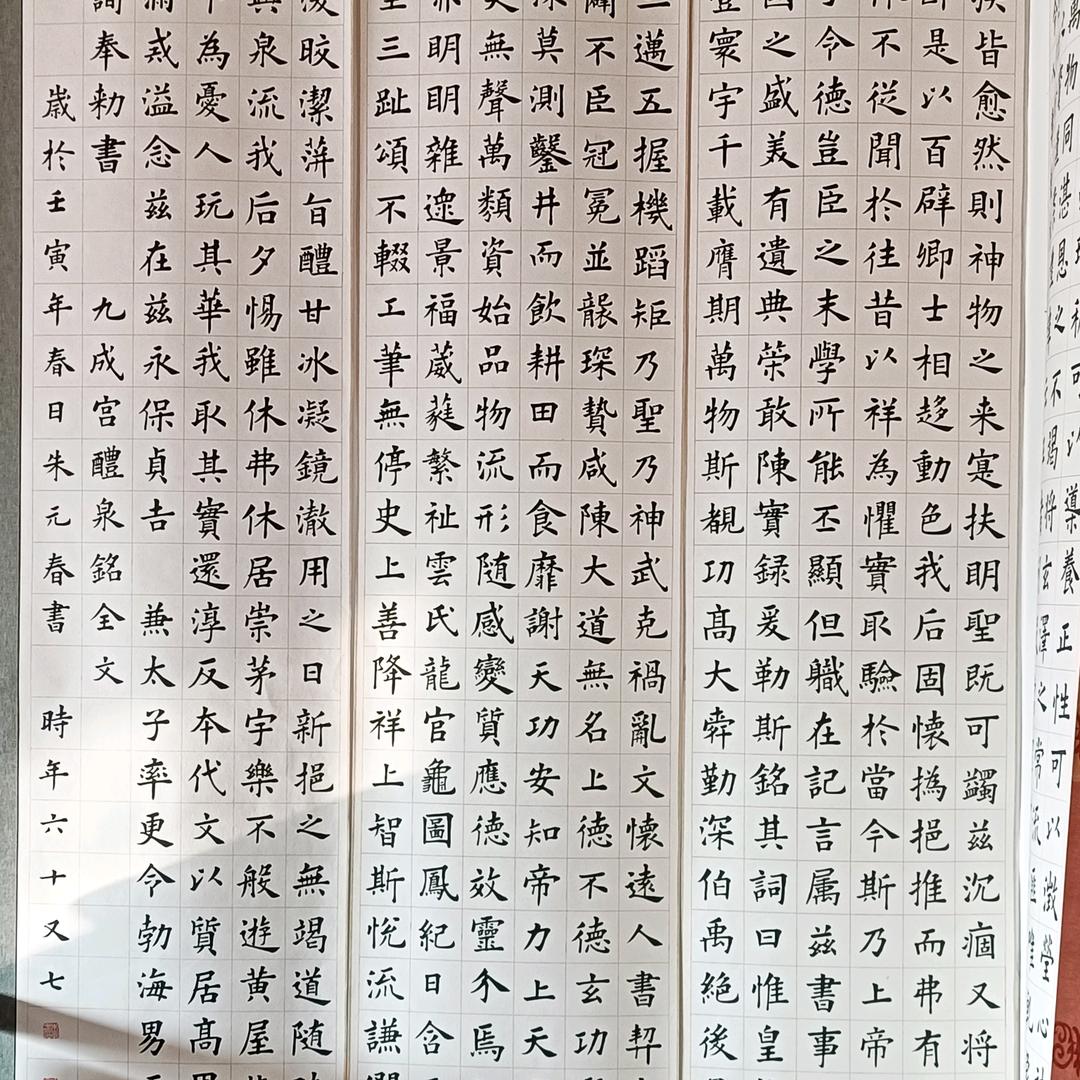 皆愈然則神物之来寔扶明聖既可蠲兹沉痼又将
是以百辟卿士相趍動色我后固懷撝挹推而弗有
不従聞於往昔以祥為懼實取驗於當今斯乃上帝
令德豈臣之末學所能丕顯但職在記言属兹書事
之盛美有遺典荣敢陳實録爰勒斯銘其詞曰惟皇
寰宇千載膺期萬物斯覩功髙大舜勤深伯禹絶後
邁五握機蹈矩乃聖乃神武克禍亂文懷遠人書契
不臣冠冕並襲琛贄咸陳大道無名上德不德玄功
莫測鑿井而飲耕田而食靡謝天功安知帝力上天
無聲萬類資始品物流形随感變質應德效靈介焉
明明雜遝景福葳蕤繁祉雲氏龍官龜圖鳳紀日含
三趾頌不輟工筆無停史上善降祥上智斯悅流謙
皎潔蓱旨醴甘冰凝鏡澈用之日新挹之無竭道随
泉流我后夕惕雖休弗休居崇茅宇樂不般遊黄屋
為憂人玩其華我取其實還淳反本代文以質居髙
戒溢念兹在兹永保貞吉 兼太子率更令勃海男
詢奉勅書 九成宮醴泉銘全文
歲於壬寅年春日朱元春書 時年六十又七